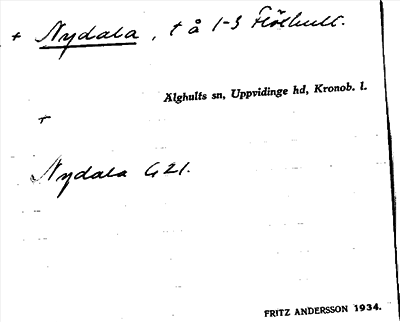 + Nydala, t å 1-3 Flöshult.
Älghults sn, Uppvidinge hd, Kronob. l.
+
Nydala G21.
FRITZ ANDERSSON 1934.